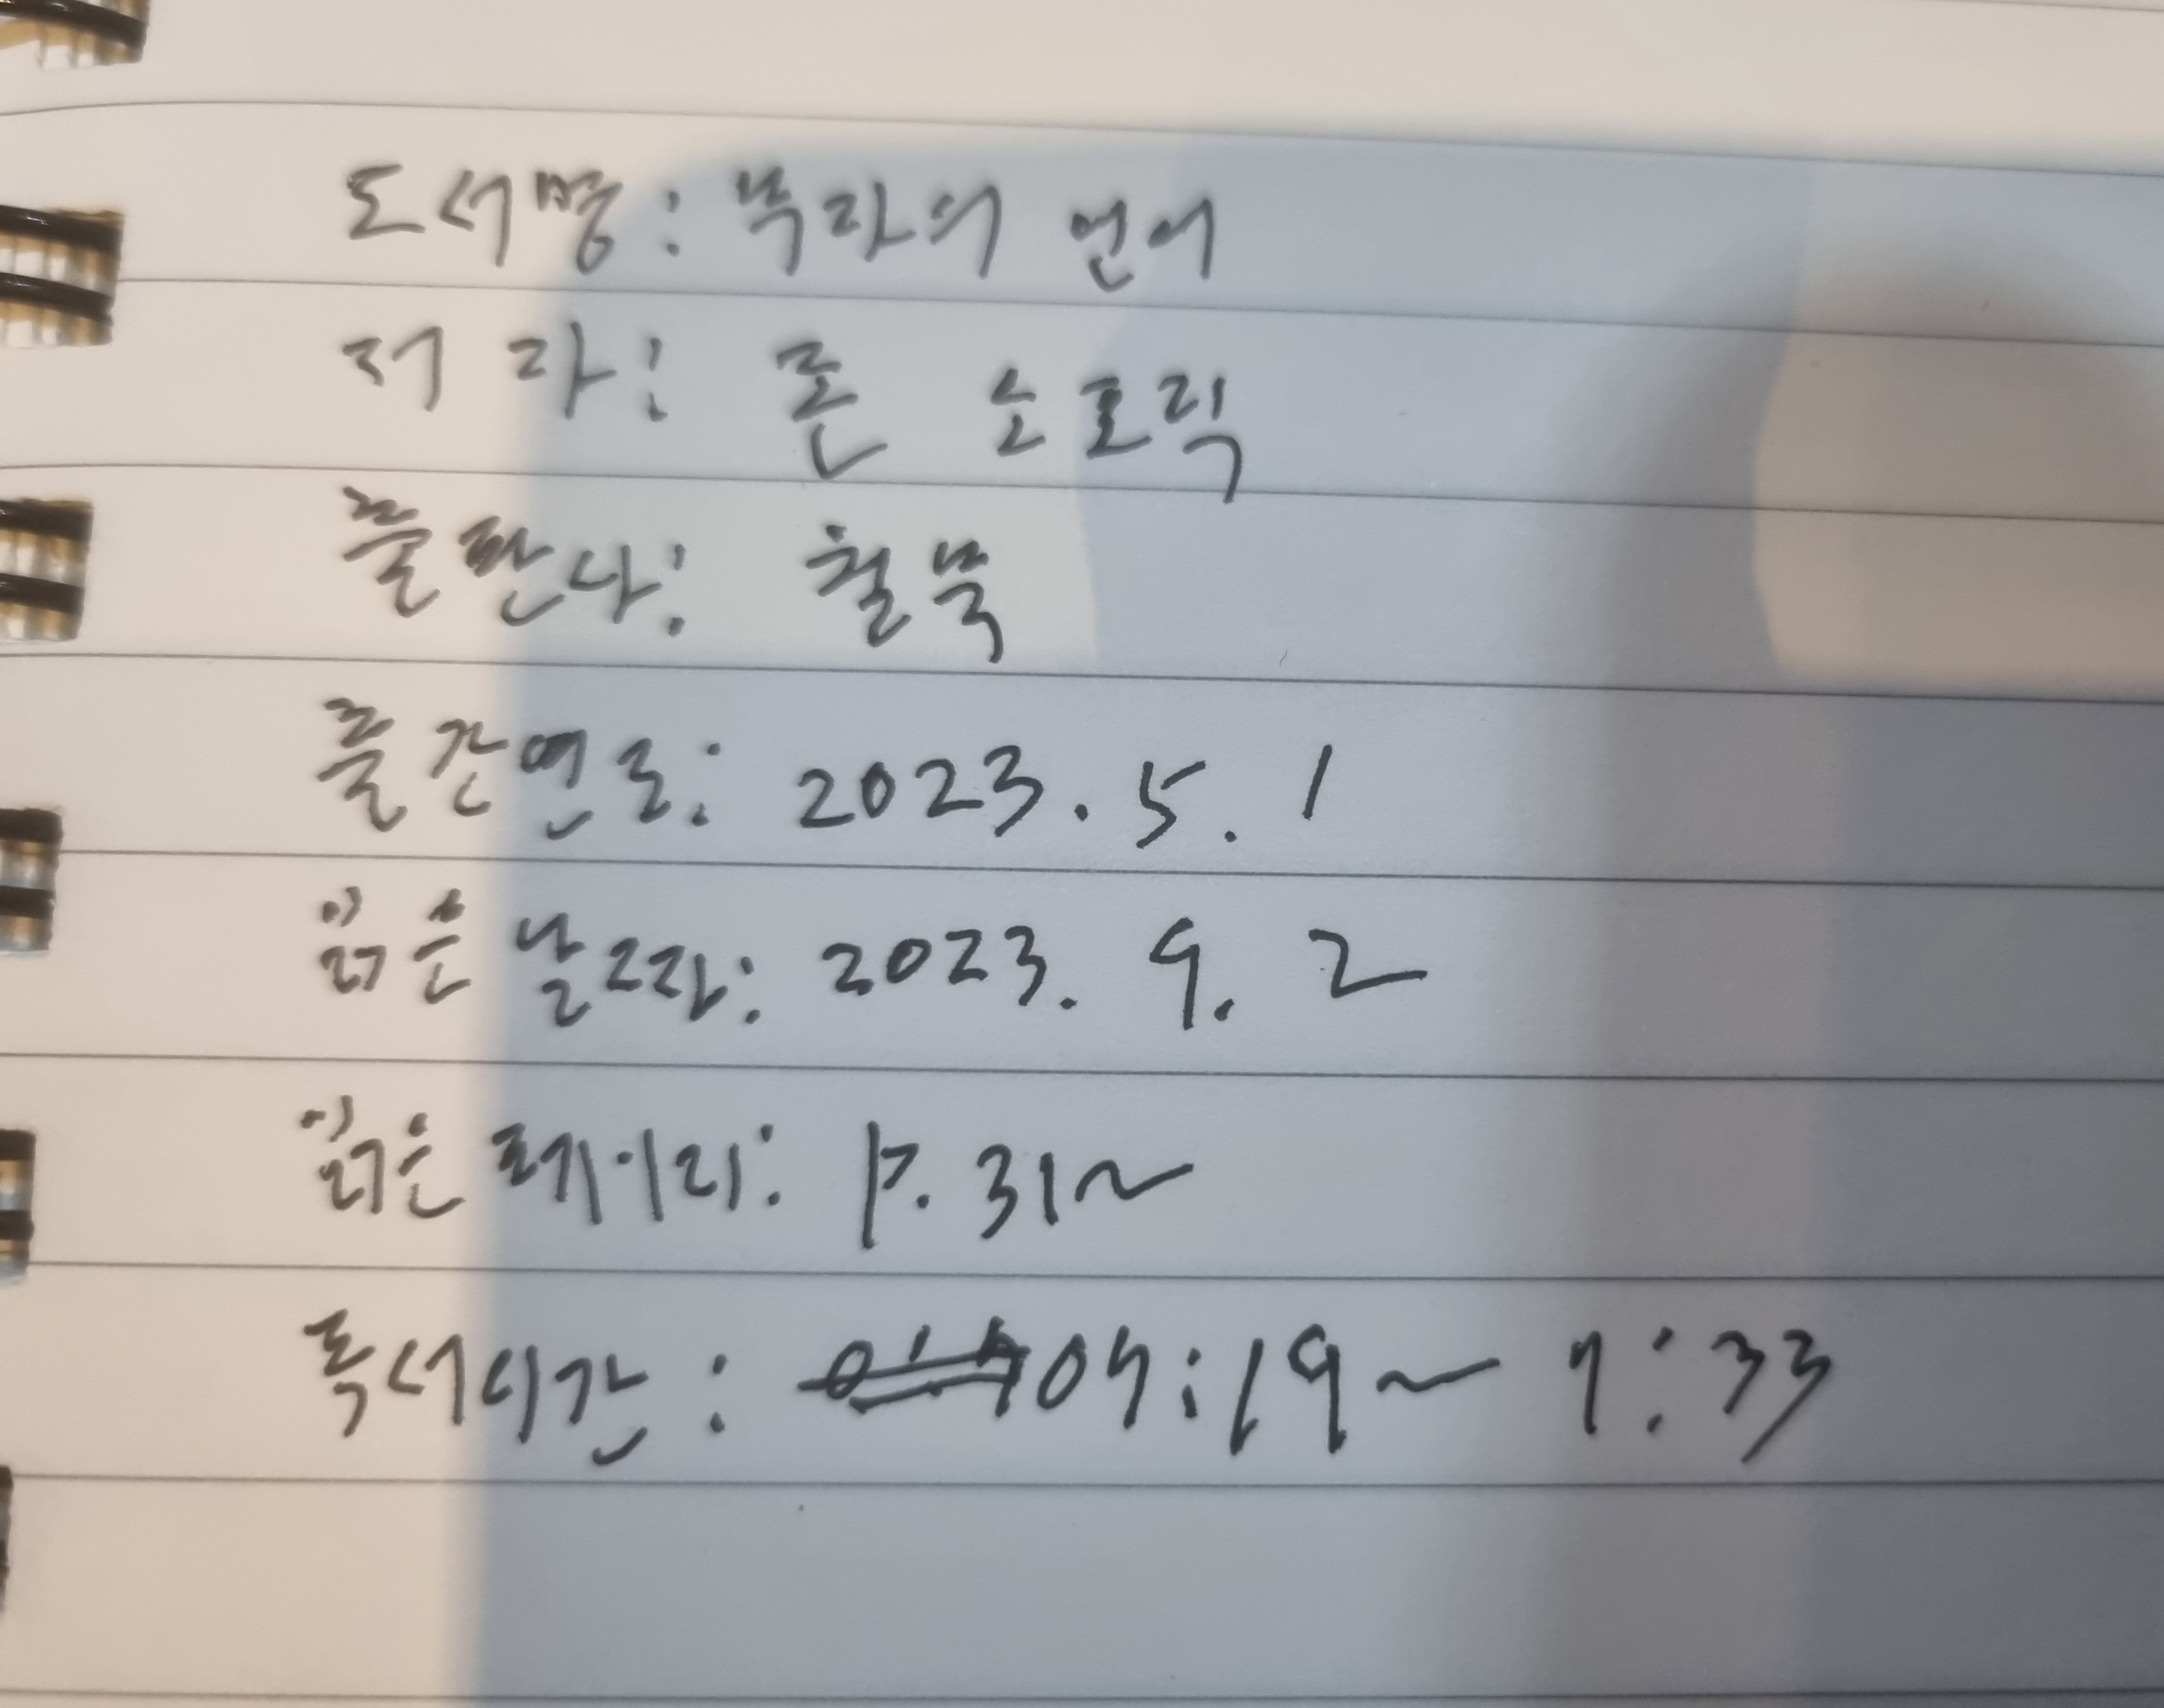 도서명: 부자의 언어
저 자: 존 소포릭
출판사: 월북
출간연도: 2023. 5. 1
읽은 날짜: 2023. 9. 2
읽은 페이지: P. 31~
독서시간: 09:19~ 9:33